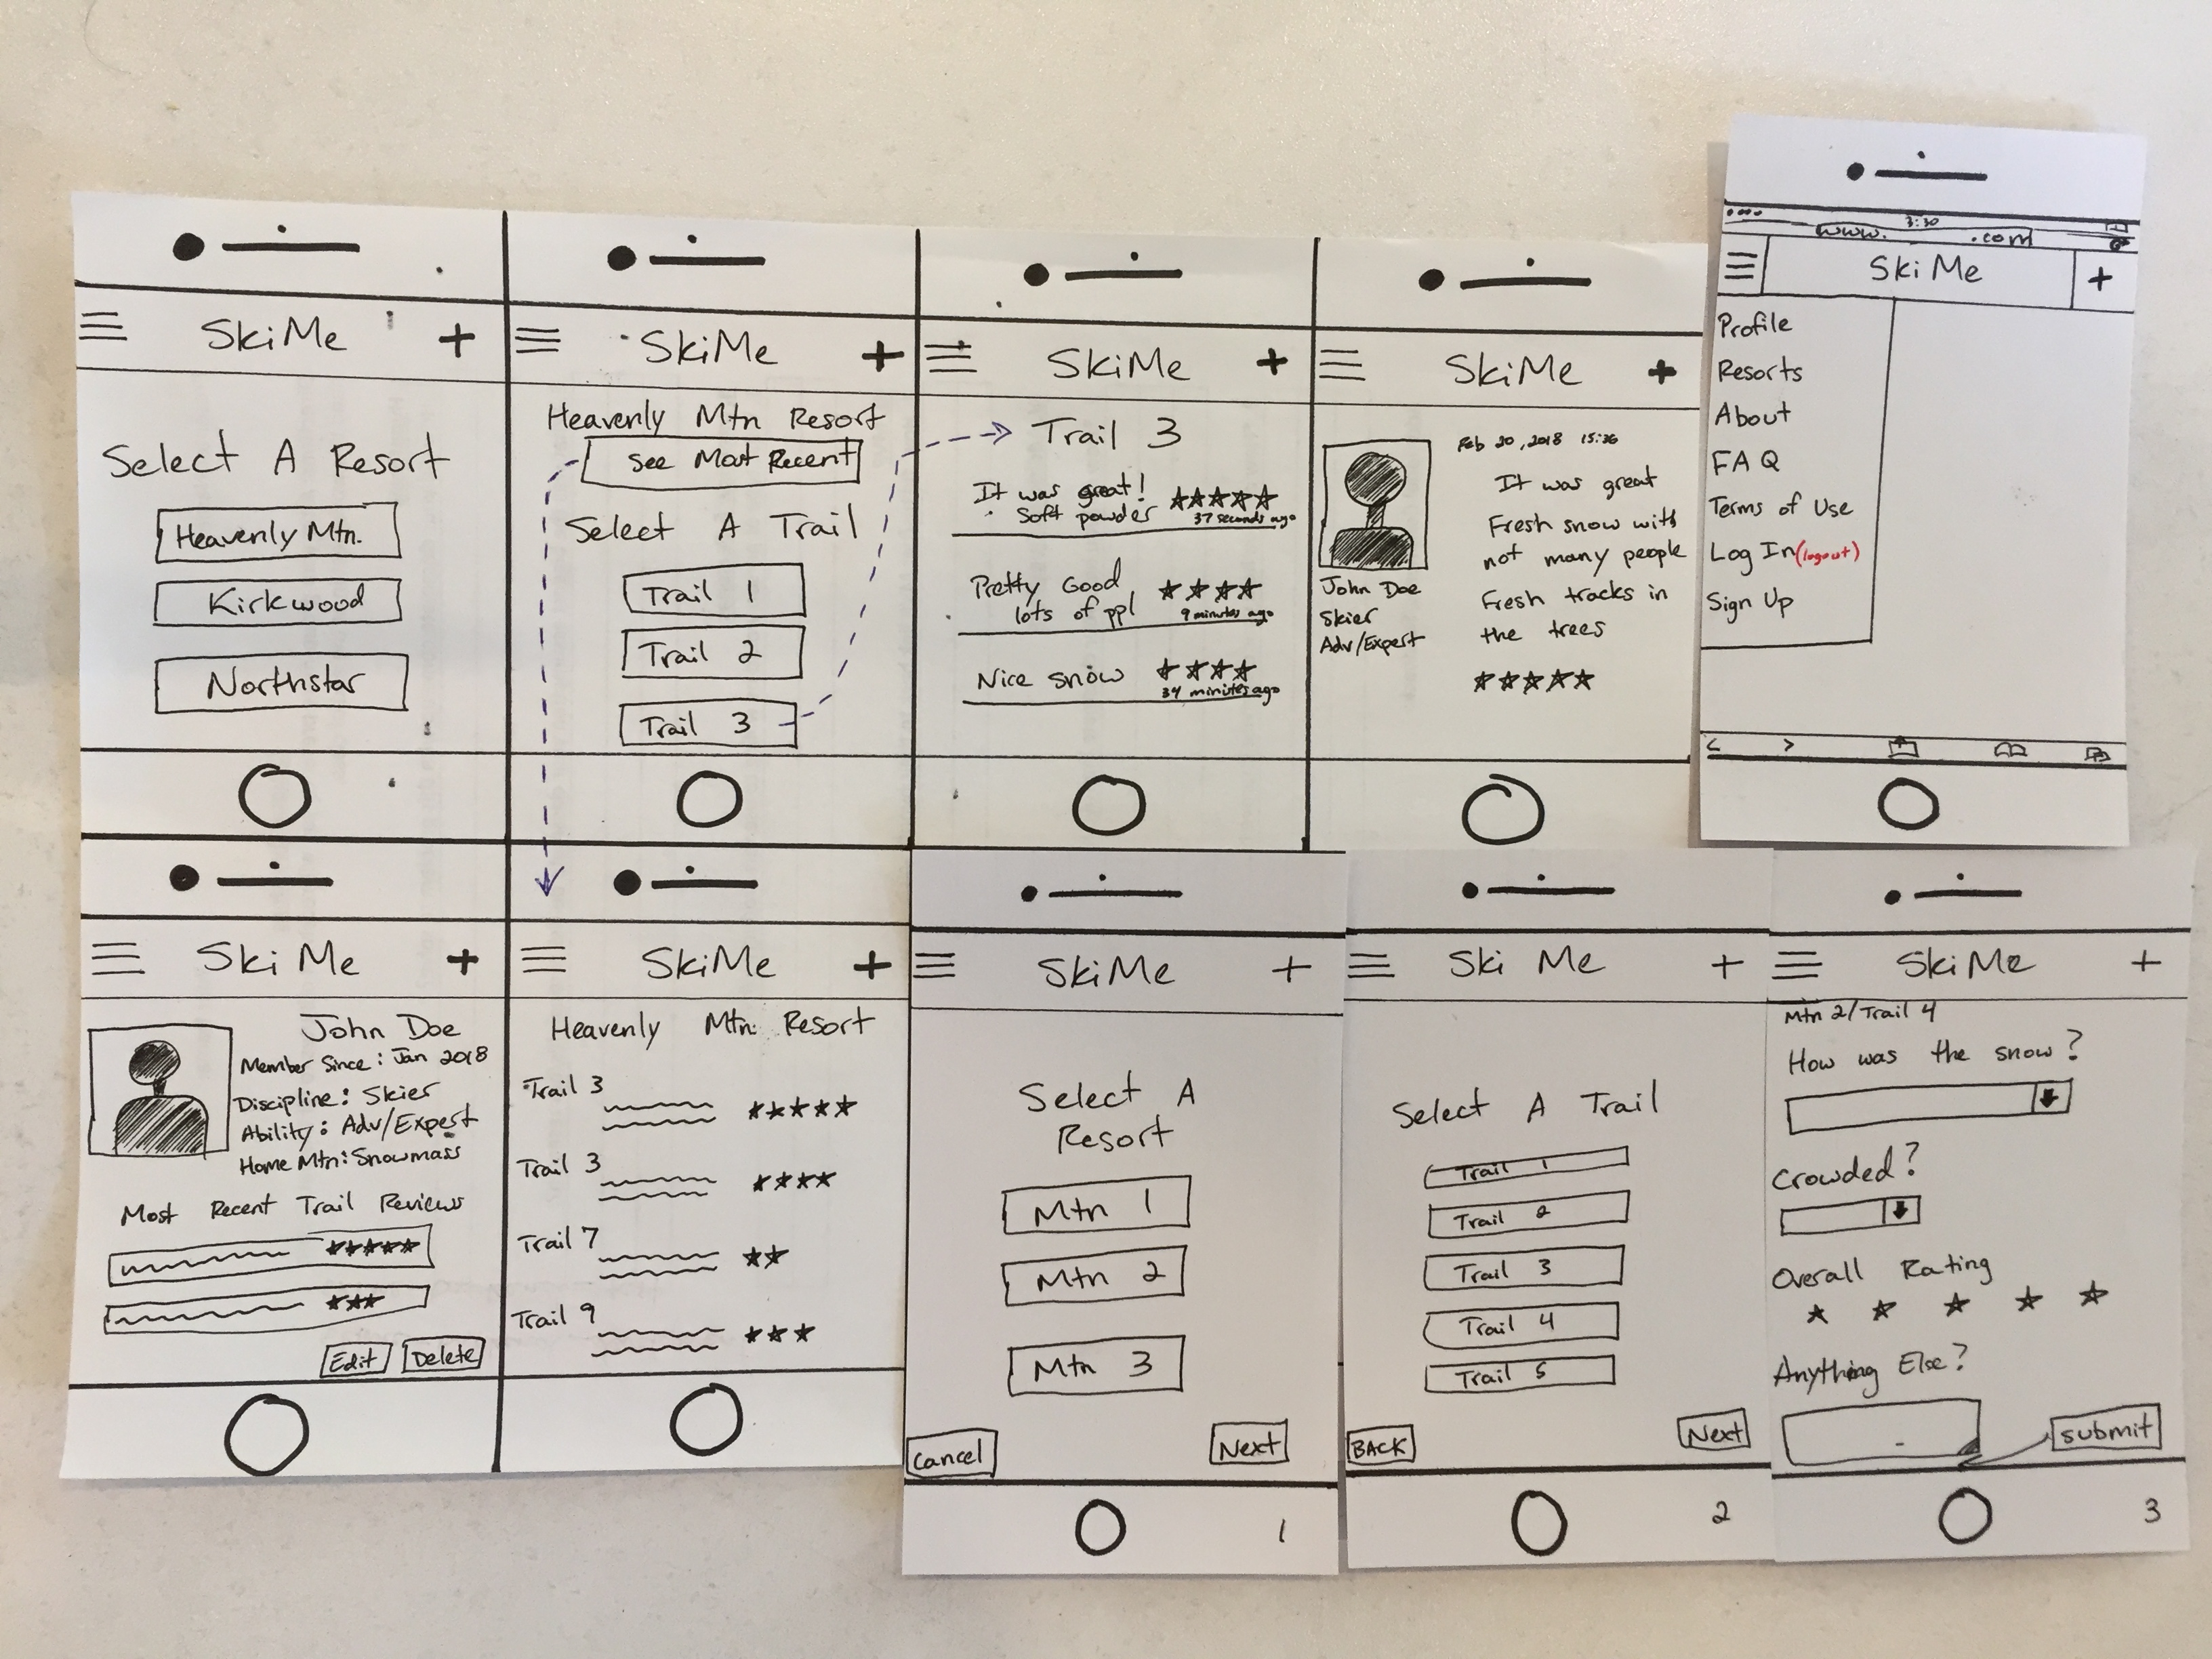 SkiMe +
Select A Resort
Heavenly Mtn.
Kirkwood
Northstar
SkiMe +
Heavenly Mtn Resort
See Most Recent
Select A Trail
Trail 1
Trail 2
Trail 3
SkiMe +
Trail 3
It was great!
Soft powder ★★★★★
37 seconds ago
Pretty Good ★★★★
lots of ppl
9 minutes ago
Nice snow ★★★★
34 minutes ago
SkiMe +
Feb 20, 2018 15:36
It was great
Fresh snow with
not many people
Fresh tracks in
the trees
★★★★★
John Doe
Skier
Adv/Expert
3:30
www. .com
Ski Me +
Profile
Resorts
About
FAQ
Terms of Use
Log In (logout)
Sign Up
< >
Ski Me +
John Doe
Member Since: Jan 2018
Discipline: Skier
Ability: Adv/Expert
Home Mtn: Snowmass
Most Recent Trail Reviews
★★★★★
★★★
Edit Delete
SkiMe +
Heavenly Mtn. Resort
Trail 3
★★★★★
Trail 3
★★★★
Trail 7
★★
Trail 9
★★★
SkiMe +
Select A
Resort
Mtn 1
Mtn 2
Mtn 3
Cancel Next
1
Ski Me +
Select A Trail
Trail 1
Trail 2
Trail 3
Trail 4
Trail 5
BACK Next
2
SkiMe +
Mtn 2/Trail 4
How was the snow?
Crowded?
Overall Rating
★ ★ ★ ★ ★
Anything Else?
submit
3